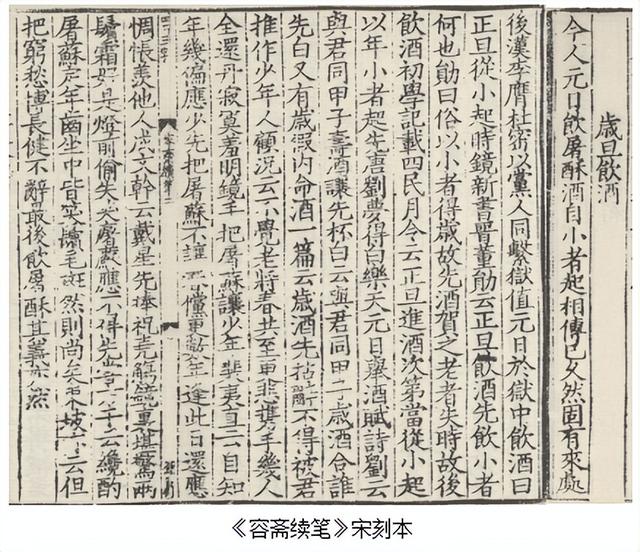 歲旦飲酒
今人元日飲屠酥酒自小者起相傳已久然固有來處
後漢李膺杜密以黨人同繫獄值元日於獄中飲酒曰
正旦從小起時鏡新書晉董勛云正旦飲酒先飲小者
何也勛曰俗以小者得歲故先酒賀之老者失時故後
飲酒初學記載四民月令云正旦進酒次第當從小起
以年小者起先唐劉夢得白樂天元日舉酒賦詩劉云
與君同甲子壽酒讓先杯白云與君同甲子歲酒合誰
先白又有歲假內命酒一篇云歲酒先拈辭不得被君
推作少年人顧況云不覺老將春共至更悲攜手幾人
全還丹寂寞羞明鏡手把屠蘇讓少年裴夷直云自知
年幾偏應少先把屠蘇不讓春儻更數年逢此日還應
惆悵羨他人成文幹云戴星先捧祝堯觴鏡裏堪驚兩
鬢霜好是燈前偷失笑屠蘇應不得先嘗方干云纔酌
屠蘇定年齒坐中皆笑鬢毛斑然則尚矣東坡亦云但
把窮愁博長健不辭最後飲屠酥其義亦然
《容斋续笔》宋刻本